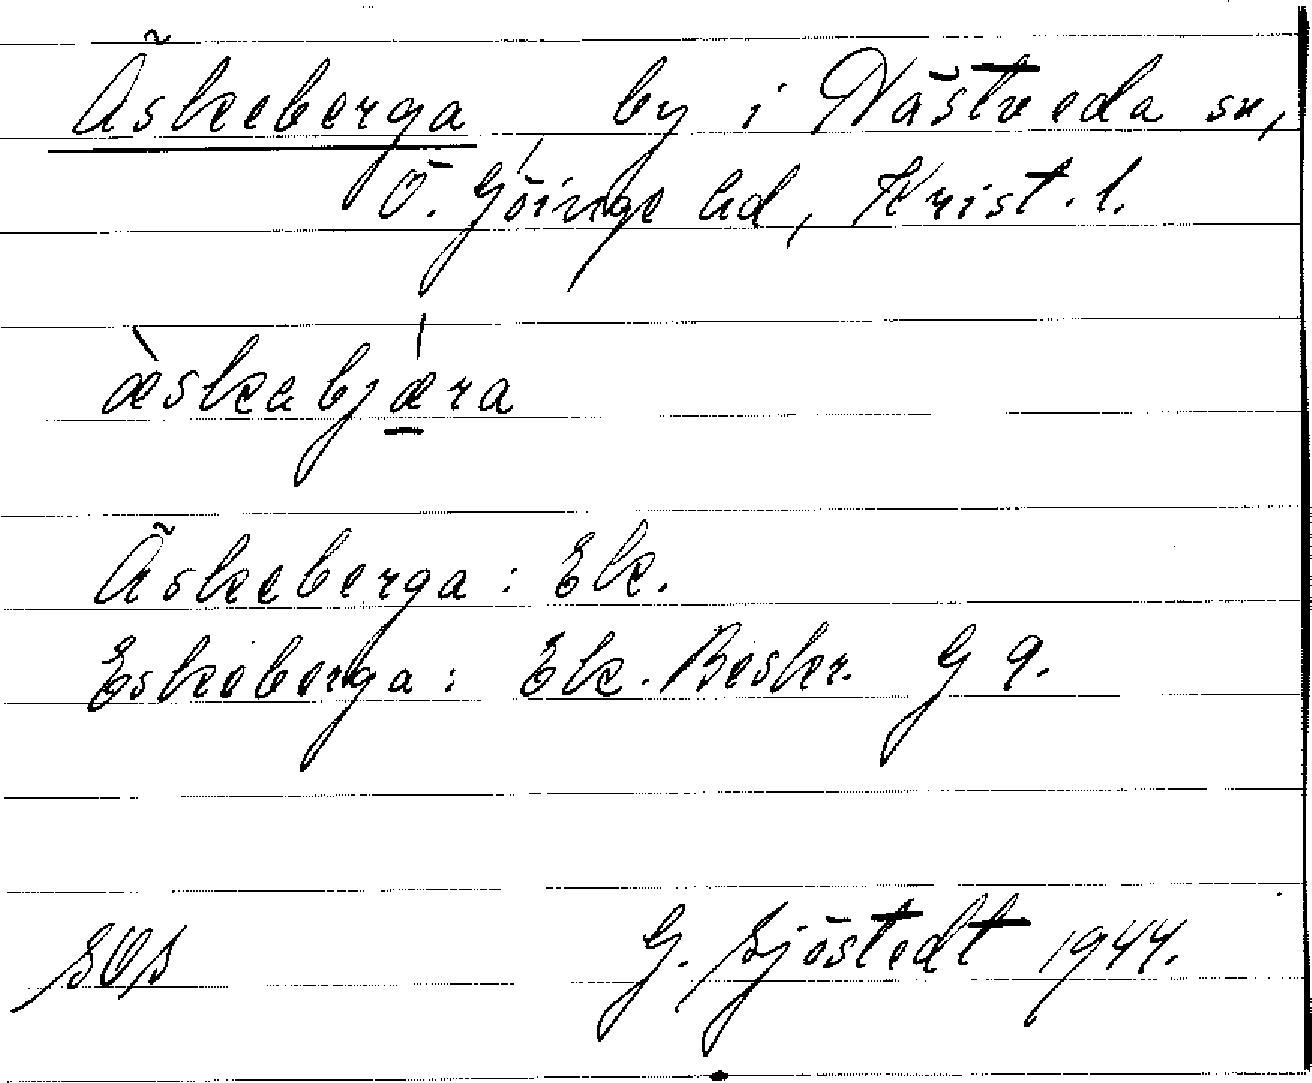 Äskeberga, by i Nästveda sn,
Ö. Göinge hd, Krist. l.
æ̀skabjǽ̲ra
Äskeberga: Ek.
Eskeberga: Ek. Beskr. G 9.
SOS G. Sjöstedt 1944.